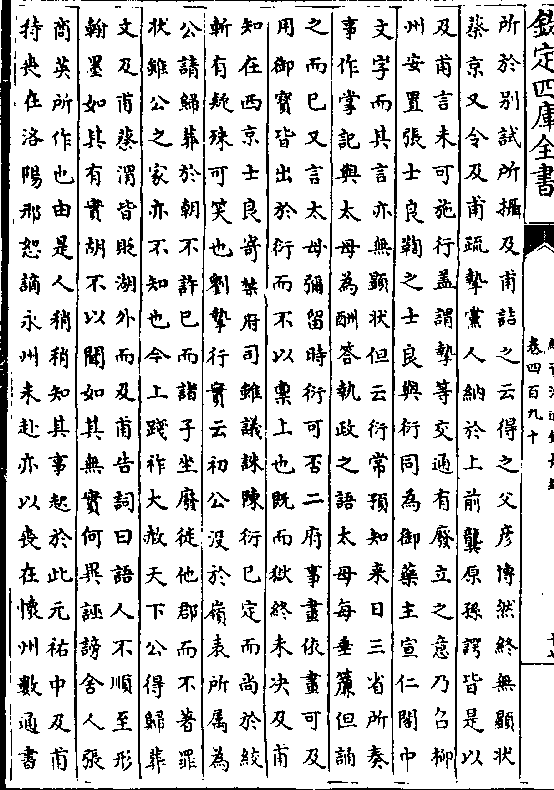 欽定四庫全書
卷四百九十
所於別試所攝及甫詰之云得之父彥博然終無顯狀
蔡京又令及甫疏摯黨人納於上前龔原孫諤皆是以
及甫言未可施行盖謂摯等交通有廢立之意乃召柳
州安置張士良鞫之士良與衍同為御藥主宣仁閤中
文字而其言亦無顯狀但云衍常預知來日三省所奏
事作掌記與太母為酬答執政之語太母每垂簾但誦
之而已又言太母彌留時衍可否二府事畫依畫可及
用御寶皆出於衍而不以稟上也既而獄終未決及甫
知在西京士良寄禁府司雖議誅陳衍已定而尚於絞
斬有疑殊可笑也劉摯行實云初公沒於嶺表所屬為
公請歸葬於朝不許已而諸子坐廢徙他郡而不著罪
狀雖公之家亦不知也今上踐祚大赦天下公得歸葬
文及甫蔡渭皆貶湖外而及甫告詞曰語人不順至形
翰墨如其有實胡不以聞如其無實何異誣謗舍人張
商英所作也由是人稍稍知其事起於此元祐中及甫
持喪在洛陽邢恕謫永州未赴亦以喪在懷州數通書